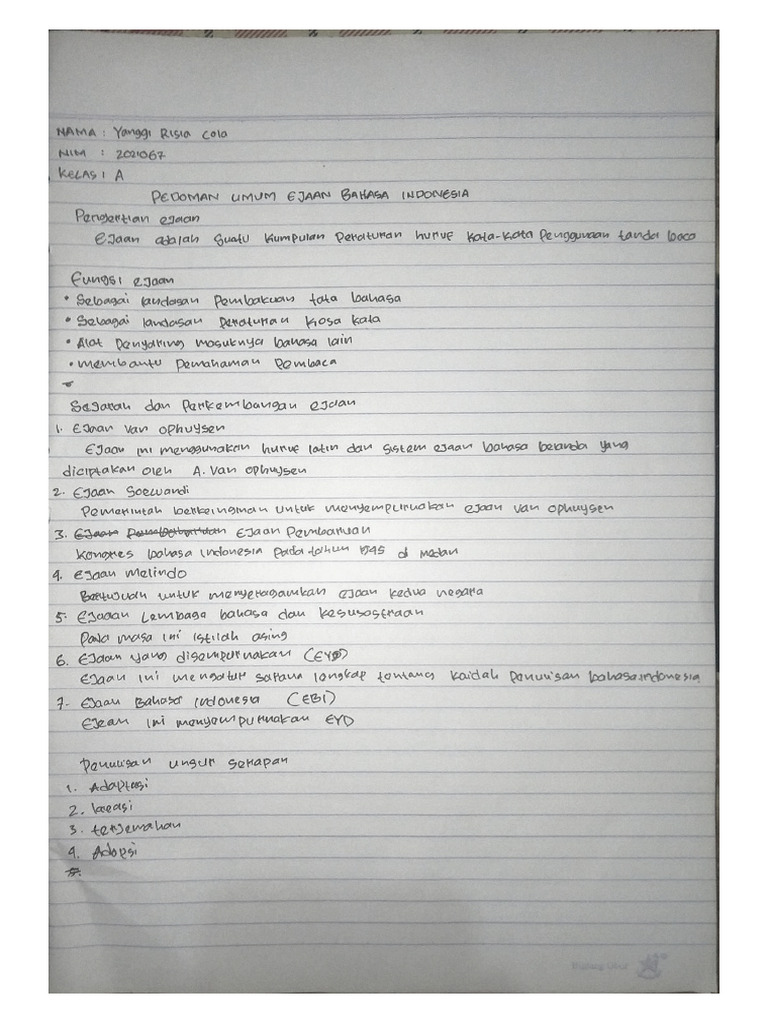 NAMA : Yanggi Risia Cola
NIM : 2021067
KELAS : A
PEDOMAN UMUM EJAAN BAHASA INDONESIA
Pengertian ejaan
Ejaan adalah suatu kumpulan peraturan huruf kata-kata penggunaan tanda baca
Fungsi ejaan
• Sebagai landasan pembakuan tata bahasa
• Sebagai landasan peraturan kosa kata
• Alat penyaring masuknya bahasa lain
• membantu pemahaman pembaca
Sejarah dan perkembangan ejaan
1. Ejaan van ophuysen
Ejaan ini menggunakan huruf latin dan sistem ejaan bahasa belanda yang
diciptakan oleh A. Van ophuysen
2. Ejaan Soewandi
Pemerintah berkeinginan untuk menyempurnakan ejaan van ophuysen
3. Ejaan Pembaharuan Ejaan Pembaruan
Kongres bahasa Indonesia pada tahun 1945 di medan
4. Ejaan Melindo
Bertujuan untuk menyeragamkan ejaan kedua negara
5. Ejaaan Lembaga bahasa dan kesusastraan
Pada masa ini istilah asing
6. Ejaan yang disempurnakan (EYD)
Ejaan ini mengatur sarana lengkap tentang kaidah penulisan bahasa indonesia
7. Ejaan Bahasa Indonesia (EBI)
Ejean ini menyempurnakan EYD
Penulisan unsur serapan
1. Adaptasi
2. kreasi
3. terjemahan
4. Adopsi